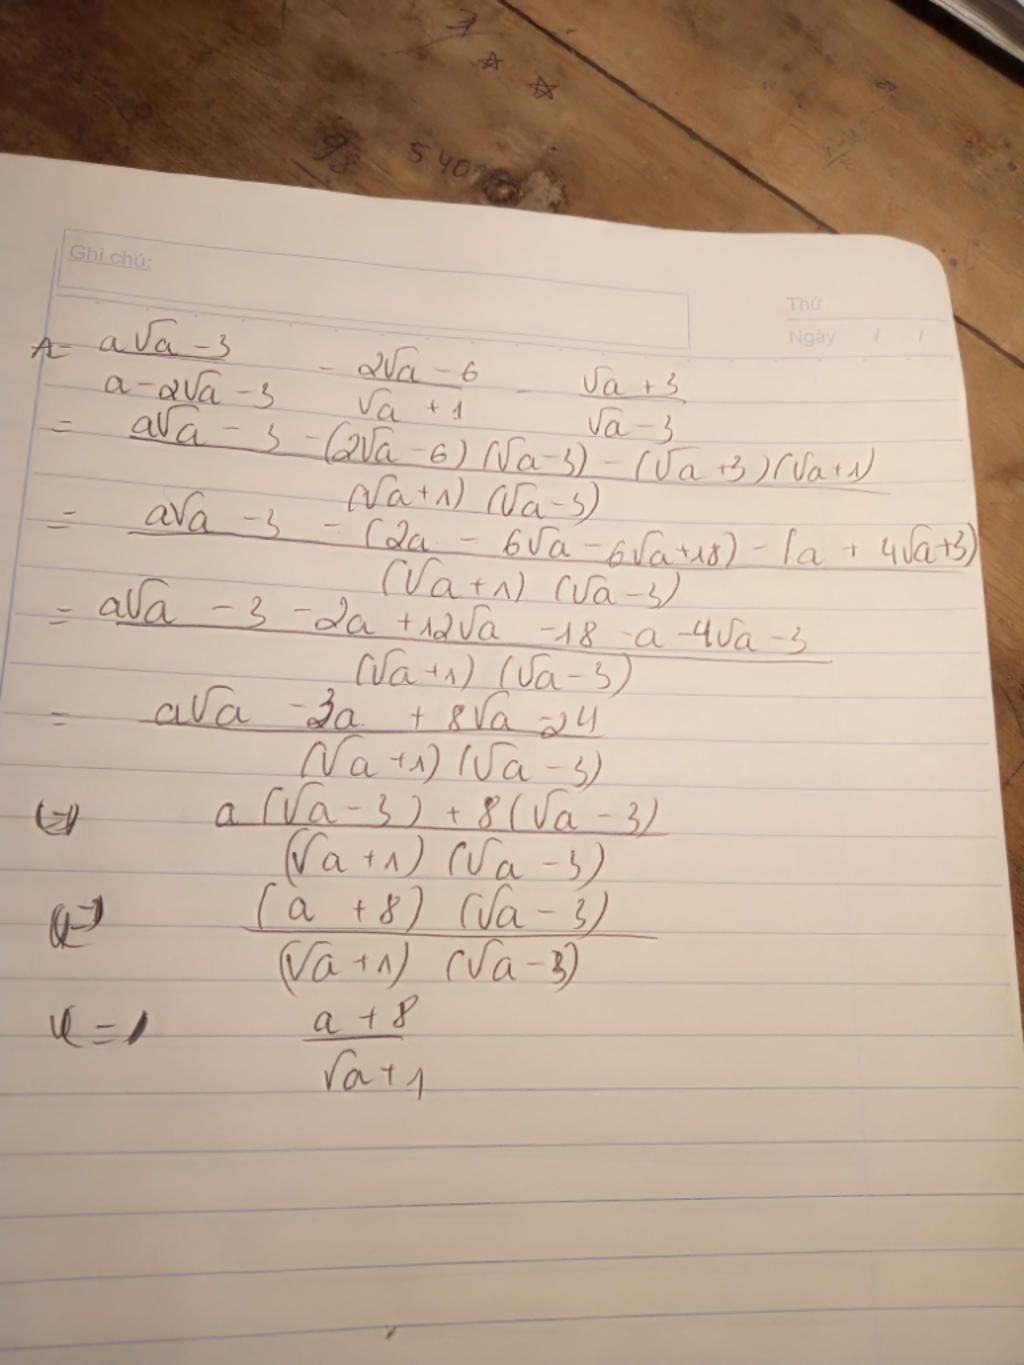 98 540
Ghi chú:
Thứ
Ngày / /
A = (a√a - 3)/(a - 2√a - 3) - (2√a - 6)/(√a + 1) - (√a + 3)/(√a - 3)
= (a√a - 3 - (2√a - 6)(√a - 3) - (√a + 3)(√a + 1))/((√a + 1)(√a - 3))
= (a√a - 3 - (2a - 6√a - 6√a + 18) - (a + 4√a + 3))/((√a + 1)(√a - 3))
= (a√a - 3 - 2a + 12√a - 18 - a - 4√a - 3)/((√a + 1)(√a - 3))
= (a√a - 3a + 8√a - 24)/((√a + 1)(√a - 3))
(a(√a - 3) + 8(√a - 3))/((√a + 1)(√a - 3))
((a + 8)(√a - 3))/((√a + 1)(√a - 3))
= (a + 8)/(√a + 1)